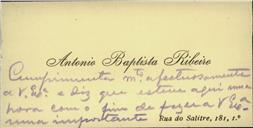 Antonio Baptista Ribeiro
Cumprimenta m.to affectuosamente
a V. Ex.ª e diz que esteve aqui uma
hora com o fim de fazer a V. Ex.ª
uma importante
Rua do Salitre, 181, 1.º